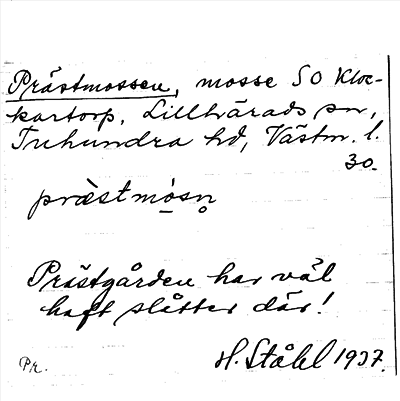 Prästmossen, mosse SO Kloc-
kartorp, Lillhärads sn,
Tuhundra hd, Västm. l.
30.
præ̀stmósn̥
Prästgården har väl
haft slåtter där!
H. Ståhl 1937.
Pr.